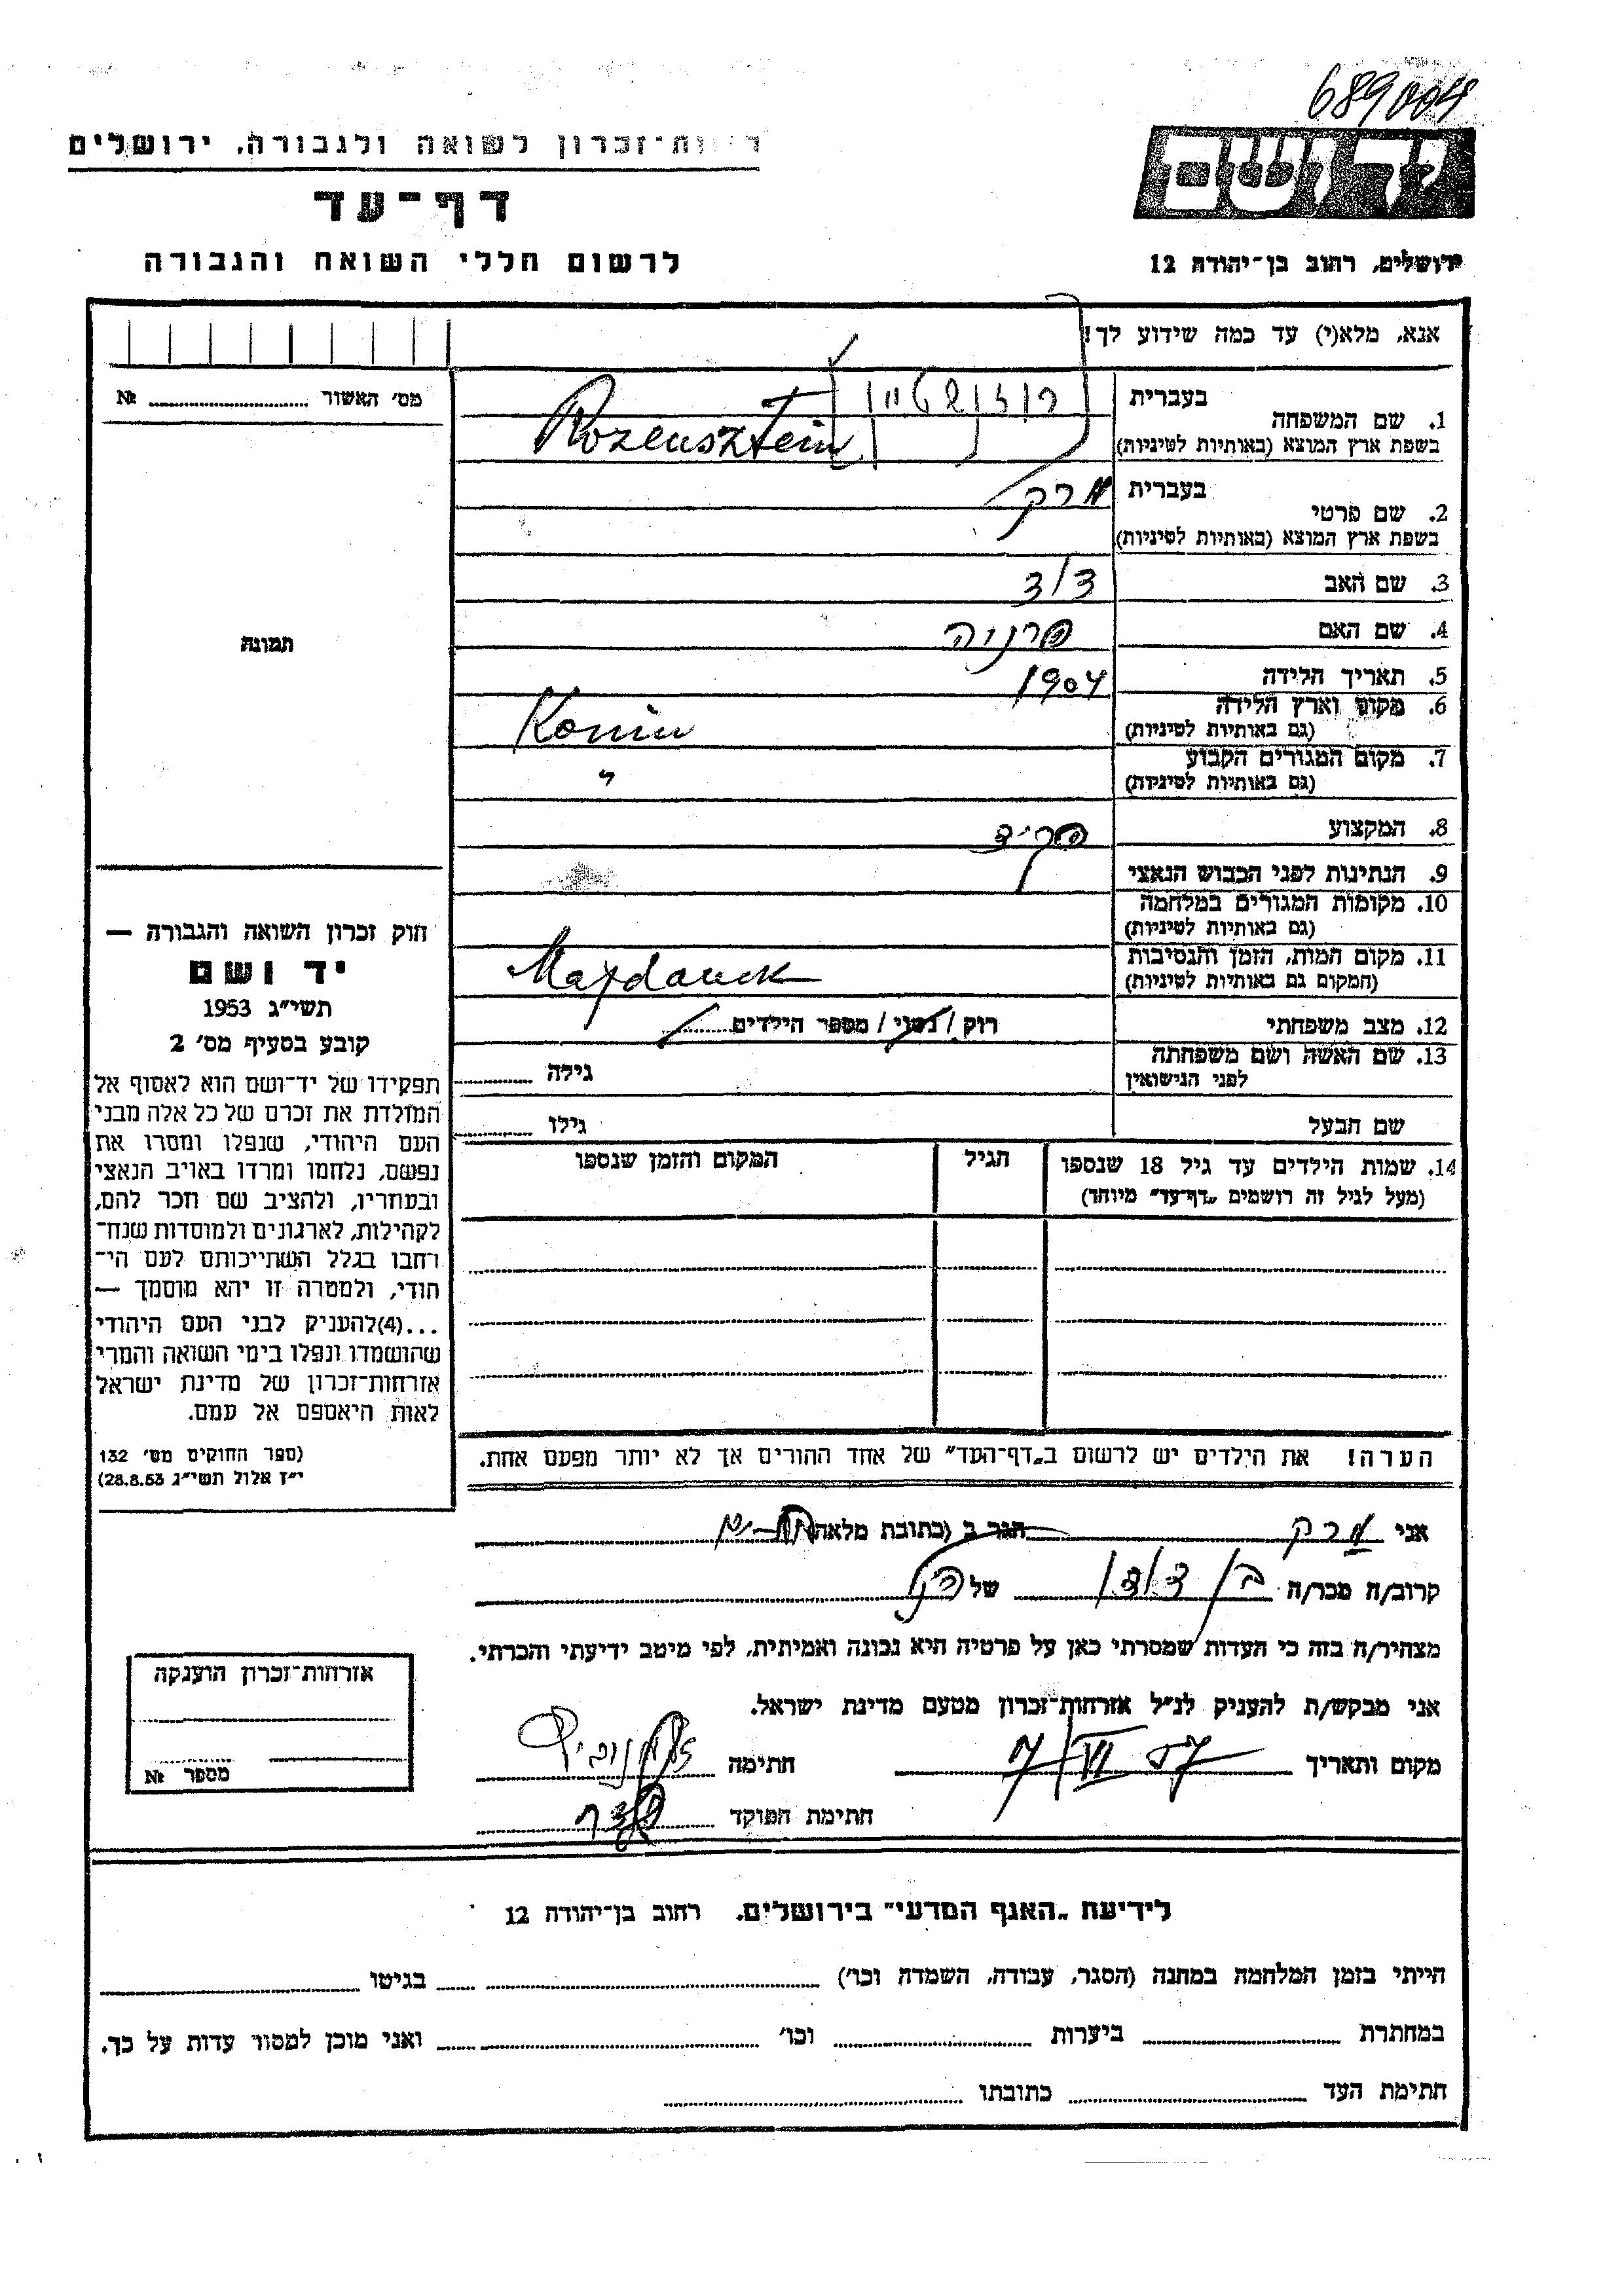 689004
רשות-זכרון לשואה ולגבורה, ירושלים
יד ושם
דף-עד
ירושלים, רחוב בן-יהודה 12
לרשום חללי השואה והגבורה
אנא, מלא(י) עד כמה שידוע לך!
מס' האשור № ..........
1. שם המשפחה
בעברית רוזנשטיין
בשפת ארץ המוצא (באותיות לטיניות) Rozensztein
2. שם פרטי
בעברית מרק
בשפת ארץ המוצא (באותיות לטיניות)
3. שם האב דוד
4. שם האם
5. תאריך הלידה 1904
6. מקום וארץ הלידה
(גם באותיות לטיניות) Konin
7. מקום המגורים הקבוע
(גם באותיות לטיניות) "
8. המקצוע פקיד
9. הנתינות לפני הכבוש הנאצי
10. מקומות המגורים במלחמה
(גם באותיות לטיניות)
11. מקום המות, הזמן והנסיבות
(המקום גם באותיות לטיניות) Majdanek
12. מצב משפחתי רוק / נשוי / מספר הילדים ..........
13. שם האשה ושם משפחתה
לפני הנישואין גילה ..........
שם הבעל גילו ..........
14. שמות הילדים עד גיל 18 שנספו
(מעל לגיל זה רושמים „דף-עד" מיוחד)
הגיל
המקום והזמן שנספו
הערה! את הילדים יש לרשום ב„דף-העד" של אחד ההורים אך לא יותר מפעם אחת.
תמונה
חוק זכרון השואה והגבורה —
יד ושם
תשי"ג 1953
קובע בסעיף מס' 2
תפקידו של יד-ושם הוא לאסוף אל
המולדת את זכרם של כל אלה מבני
העם היהודי, שנפלו ומסרו את
נפשם, נלחמו ומרדו באויב הנאצי
ובעוזריו, ולהציב שם וזכר להם,
לקהילות, לארגונים ולמוסדות שנח-
רבו בגלל השתייכותם לעם הי-
הודי, ולמטרה זו יהא מוסמך —
...(4) להעניק לבני העם היהודי
שהושמדו ונפלו בימי השואה והמרי
אזרחות-זכרון של מדינת ישראל
לאות היאספם אל עמם.
(ספר החוקים מס' 132
י"ז אלול תשי"ג 28.8.53)
אני מרק הגר ב (כתובת מלאה)
קרוב/ה מכר/ה בן דודו של הנ"ל
מצהיר/ה בזה כי העדות שמסרתי כאן על פרטיה היא נכונה ואמיתית, לפי מיטב ידיעתי והכרתי.
אני מבקש/ת להעניק לנ"ל אזרחות-זכרון מטעם מדינת ישראל.
מקום ותאריך 7/VI 57 חתימה
חתימת הפוקד
אזרחות-זכרון הוענקה
מספר №
לידיעת „האגף המדעי" בירושלים, רחוב בן-יהודה 12
הייתי בזמן המלחמה במחנה (הסגר, עבודה, השמדה וכו') .......... בגיטו ..........
במחתרת .......... ביערות .......... וכו' .......... ואני מוכן למסור עדות על כך.
חתימת העד .......... כתובתו ..........